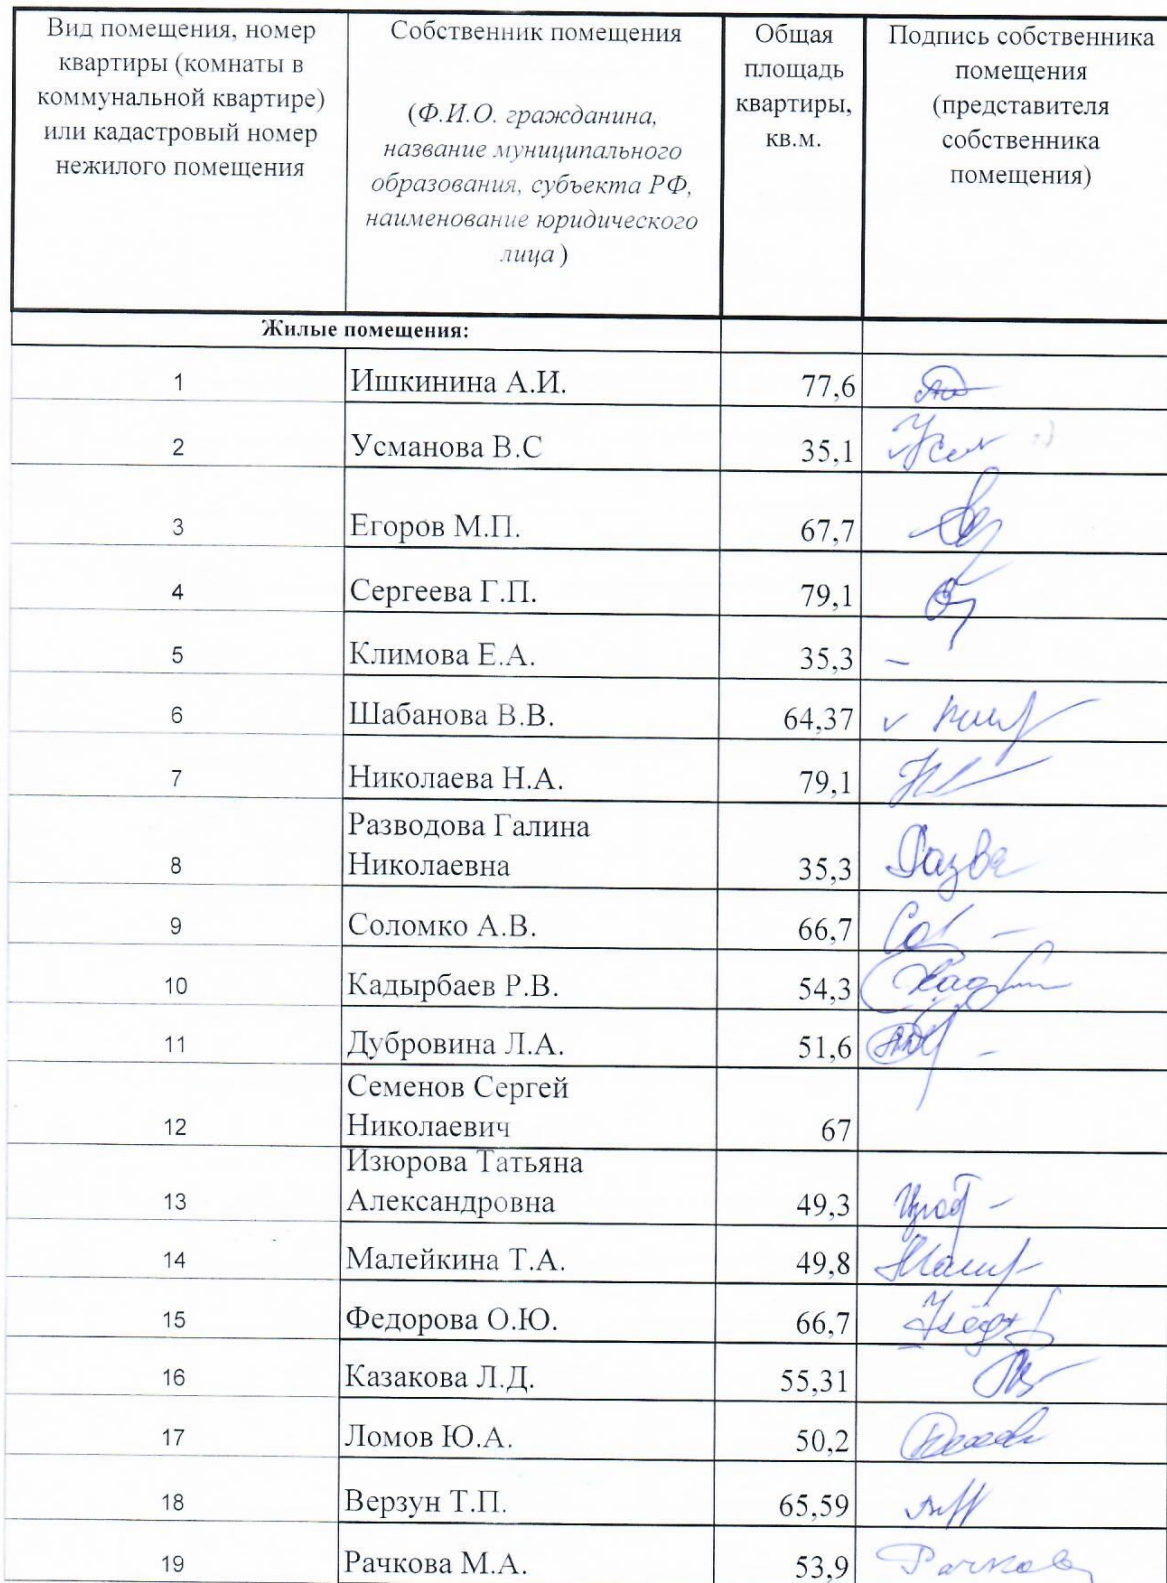 Вид помещения, номер
квартиры (комнаты в
коммунальной квартире)
или кадастровый номер
нежилого помещения
Собственник помещения
(Ф.И.О. гражданина,
название муниципального
образования, субъекта РФ,
наименование юридического
лица)
Общая
площадь
квартиры,
кв.м.
Подпись собственника
помещения
(представителя
собственника
помещения)
Жилые помещения:
1 Ишкинина А.И. 77,6
2 Усманова В.С 35,1
3 Егоров М.П. 67,7
4 Сергеева Г.П. 79,1
5 Климова Е.А. 35,3
6 Шабанова В.В. 64,37
7 Николаева Н.А. 79,1
Разводова Галина
8 Николаевна 35,3
9 Соломко А.В. 66,7
10 Кадырбаев Р.В. 54,3
11 Дубровина Л.А. 51,6
Семенов Сергей
12 Николаевич 67
Изюрова Татьяна
13 Александровна 49,3
14 Малейкина Т.А. 49,8
15 Федорова О.Ю. 66,7
16 Казакова Л.Д. 55,31
17 Ломов Ю.А. 50,2
18 Верзун Т.П. 65,59
19 Рачкова М.А. 53,9